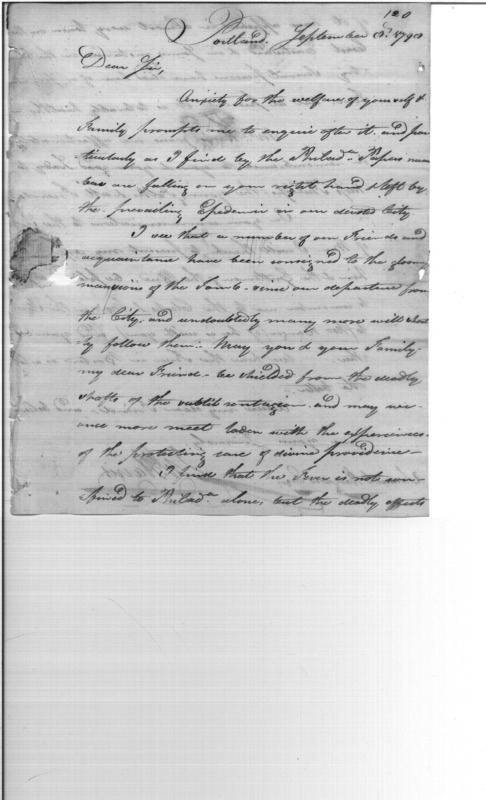 120
Portland. September 8th. 1798
Dear Sir,
Anxiety for the welfare of yourself &
Family prompts me to enquire after it. and par
ticularly as I find by the Philada. Papers num
bers are falling on your right hand & left by
the prevailing Epedemic in our devoted City
I see that a number of our Friends and
acquaintance have been consigned to the gloomy
mansions of the Tomb- since our departure from
the City, and undoubtedly many more will short
ly follow them:- May you & your Family-
my dear Friend- be shielded from the deadly
shafts of the subtil contagion- and may we
once more meet laden with the experiences
of the protecting care of divine providence-
I find that the Fever is not con-
fined to Philada. alone, but the deadly effects